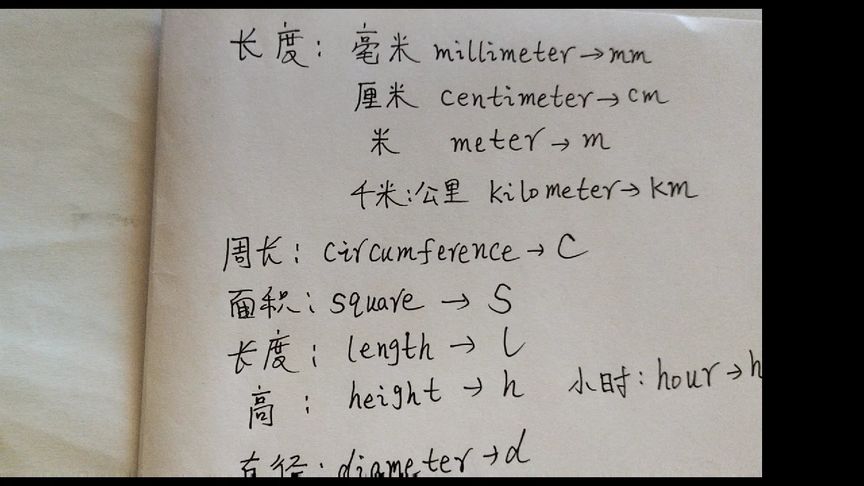 长度：毫米 millimeter→mm
厘米 centimeter→cm
米 meter→m
千米:公里 kilometer→km
周长：circumference→C
面积：square→S
长度：length→l
高：height→h 小时：hour→h
直径：diameter→d